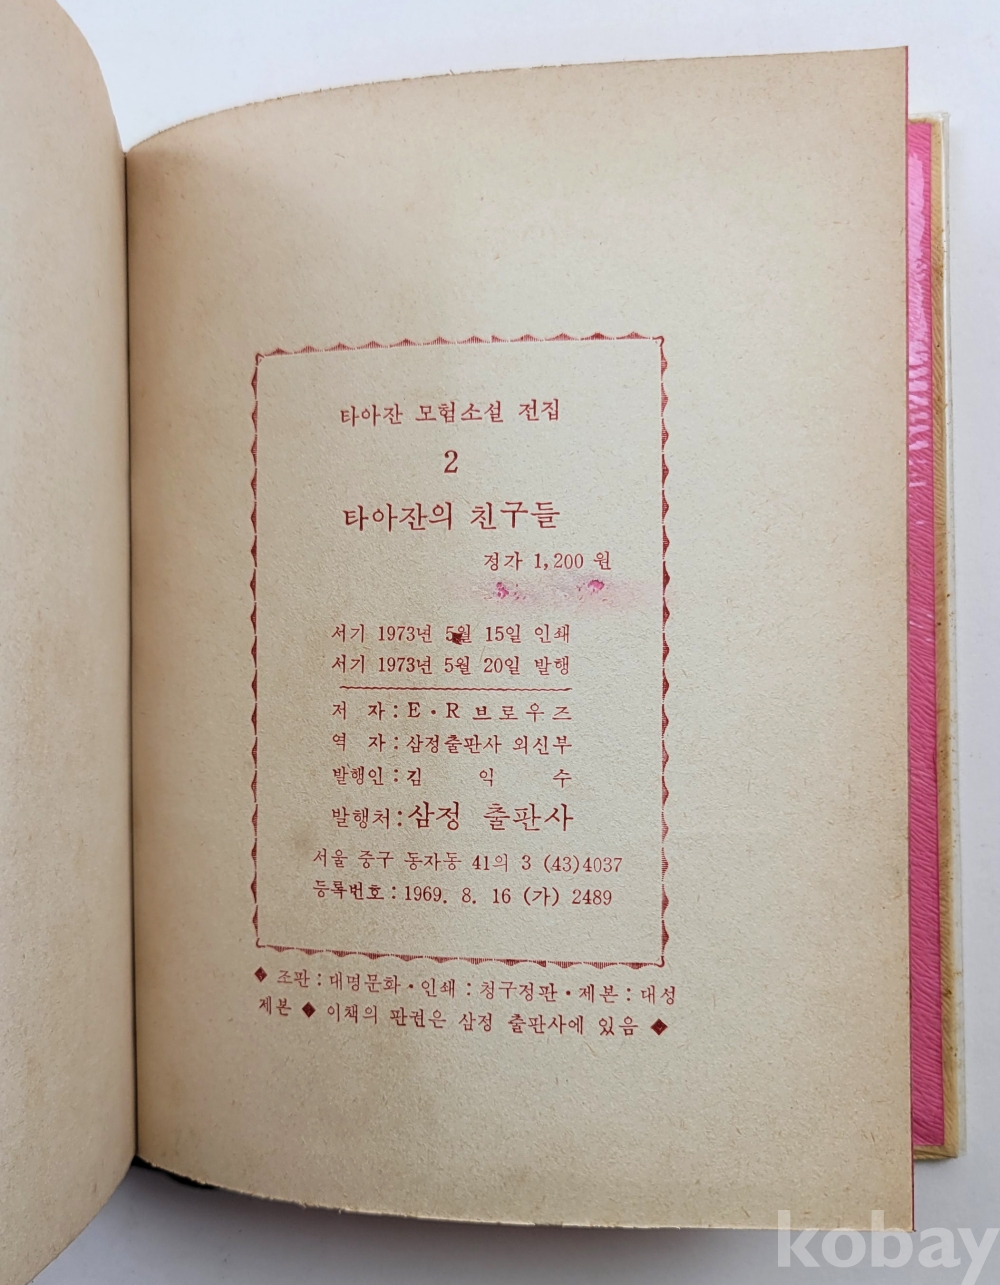 타아잔 모험소설 전집
2
타아잔의 친구들
정가 1,200 원
서기 1973년 5월 15일 인쇄
서기 1973년 5월 20일 발행
저 자 : E · R 브로우즈
역 자 : 삼정출판사 외신부
발행인 : 김 익 수
발행처 : 삼정 출판사
서울 중구 동자동 41의 3 (43)4037
등록번호 : 1969. 8. 16 (가) 2489
◆ 조판 : 대명문화 · 인쇄 : 청구정판 · 제본 : 대성
제본 ◆ 이책의 판권은 삼정 출판사에 있음 ◆
kobay